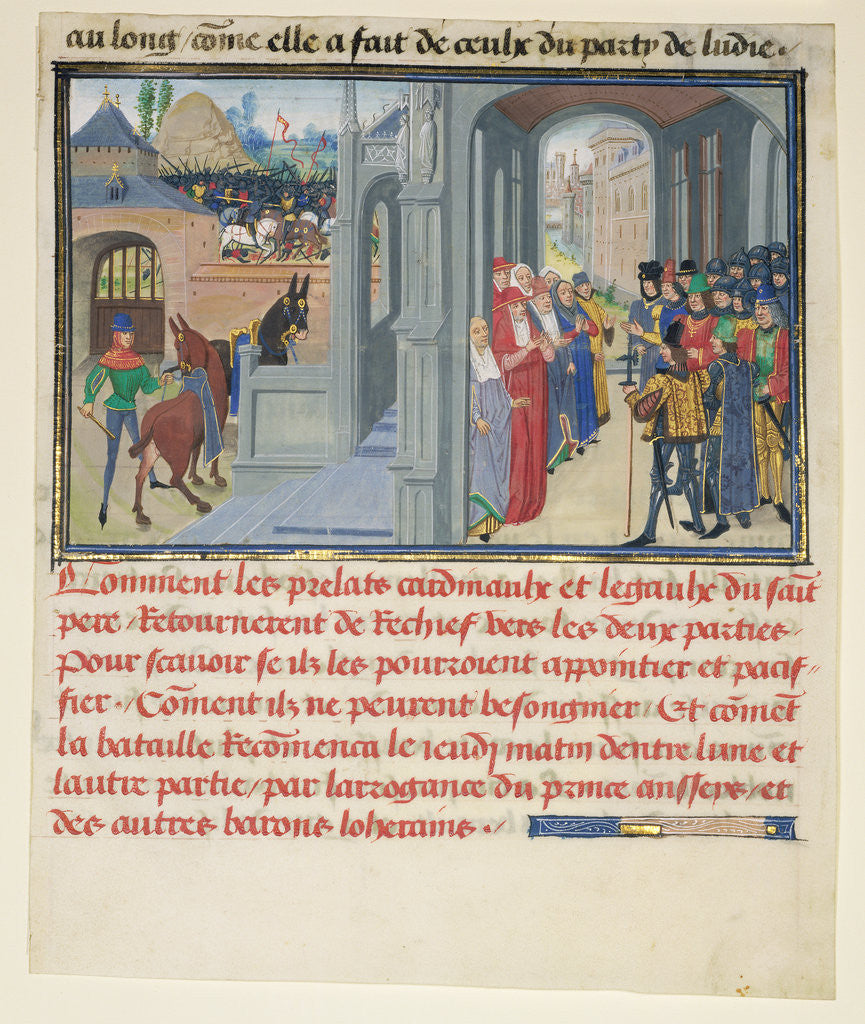 au long / cõme elle a fait de ceulx du party de ludie .
Comment les prelats cardinaulx et legaulx du saĩt
pere / Retournerent de Rechief vers les deux parties .
Pour scauoir se ilz les pourroient appointier et pacif〃
fier . / Cõment ilz ne peurent besongnier / Et cõmẽt
la bataille Recõmenca le ieudj matin dentre lune et
lautre partie / par larrogance du prince ansseys / et
des autres barons loherains . /